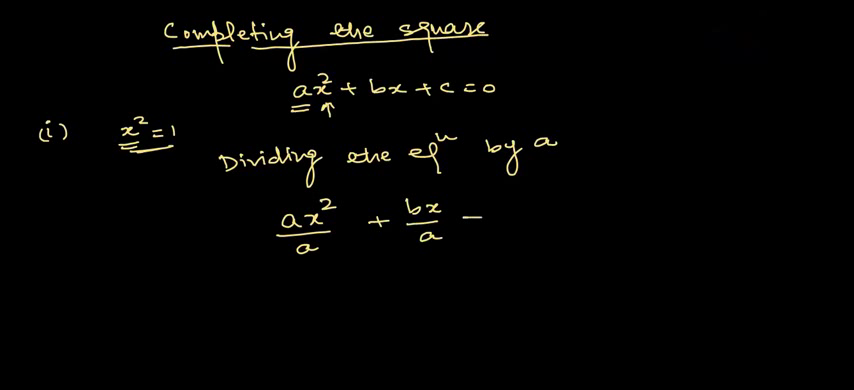 Completing the square
ax² + bx + c = 0
(i) x² = 1
Dividing the eqⁿ by a
ax²/a + bx/a -